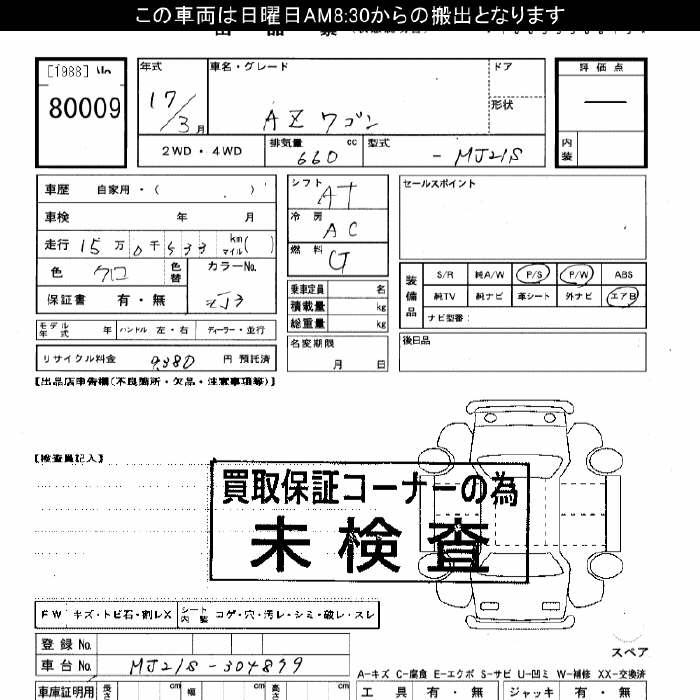 この車両は日曜日AM8:30からの搬出となります
[1988]
80009
年式 車名・グレード ドア 評価点
17/3月 AZワゴン 形状 —
2WD・4WD 排気量 660 cc 型式 -MJ21S 内装
車歴 自家用・( . )
車検 年 月
走行 15万0千533 km マイル( )
色 クロ 色替 カラーNo. ZJ3
保証書 有・無
モデル年式 年 ハンドル 左・右 ディーラー・並行
リサイクル料金 9380 円 預託済
シフト AT
冷房 AC
燃料 G
乗車定員 名
積載量 kg
総重量 kg
名変期限 月 日
セールスポイント
装備品 S/R 純A/W P/S P/W ABS
純TV 純ナビ 革シート 外ナビ エアB
ナビ型番:
後日品
【出品店申告欄(不良箇所・欠品・注意事項等)】
【検査員記入】
買取保証コーナーの為
未検査
FW キズ・トビ石・割レX シート内装 コゲ・穴・汚レ・シミ・破レ・スレ
登録 No.
車台 No. MJ21S-304899
スペア
A-キズ C-腐食 E-エクボ S-サビ U-凹ミ W-補修 XX-交換済
車庫証明用 長さ cm 幅 cm 高さ cm
工具 有・無 ジャッキ 有・無